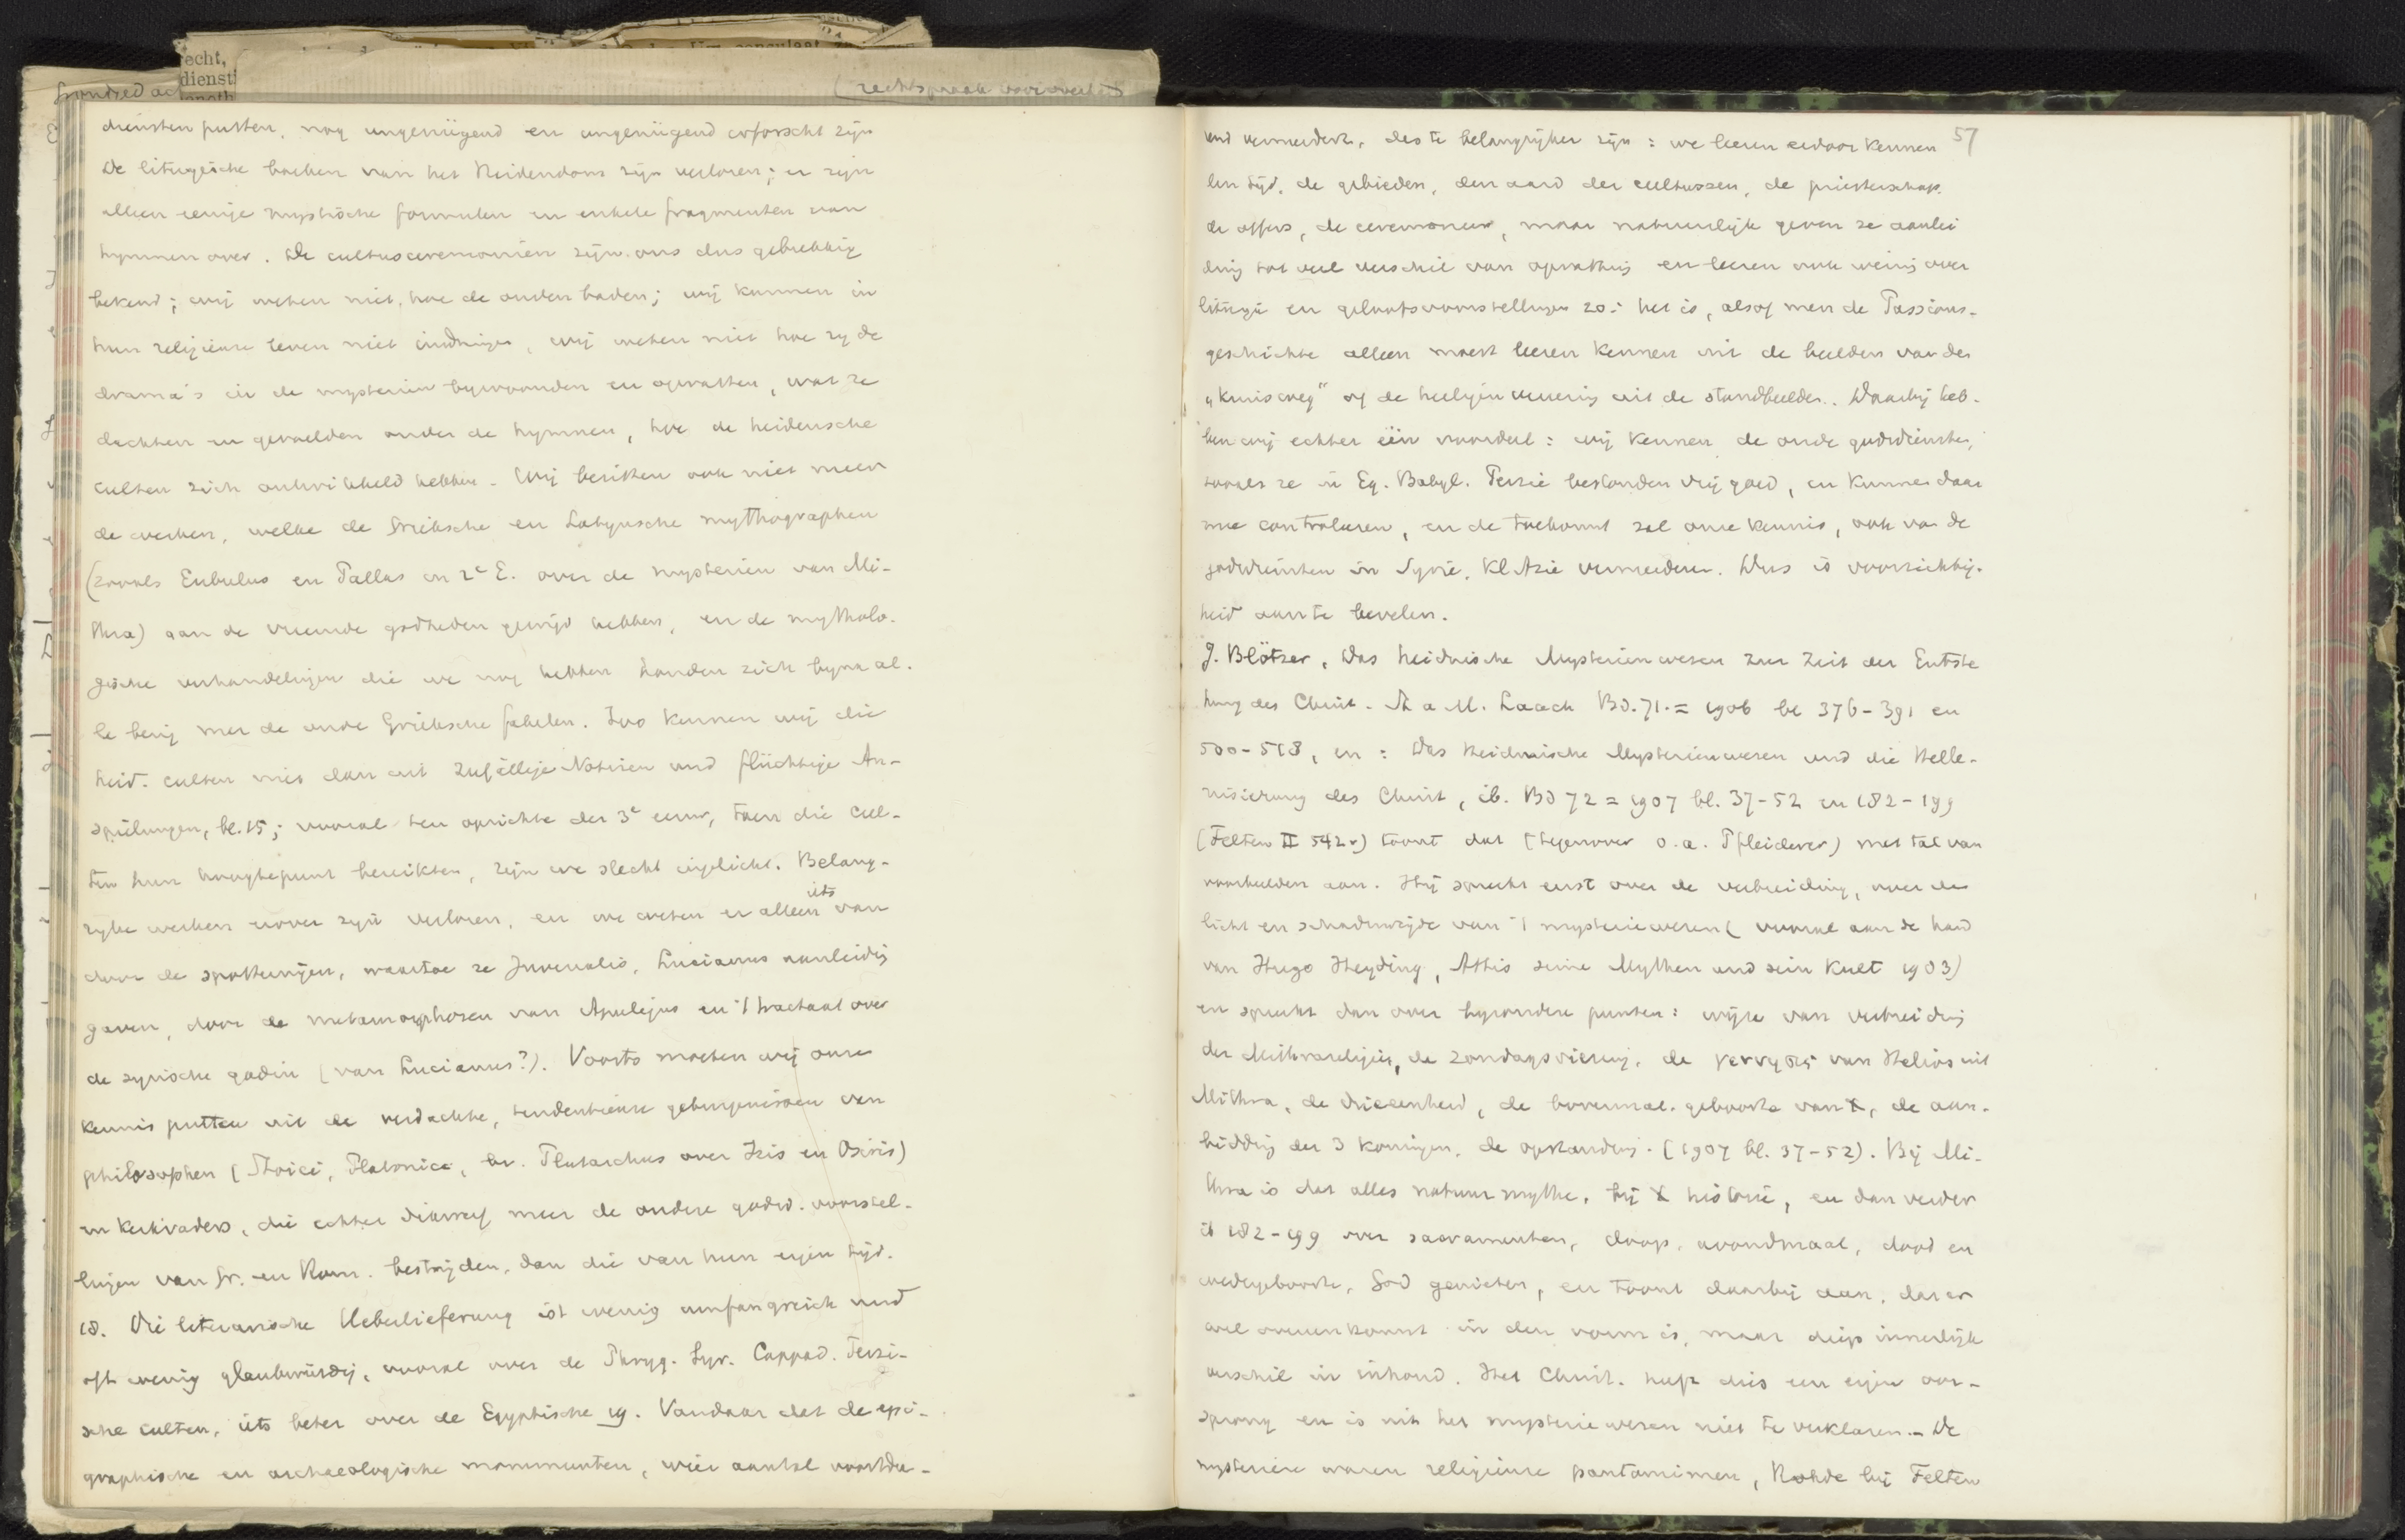 echt,
diensti
(rechtspraak
diensten putten, nog ungenügend en ungenügend erforscht zijn
De liturgische boeken van het Heidendom zijn verloren; er zijn
alleen eenige mystische formulen en enkele fragmenten van
hymnen over. De cultusceremoniën zijn ons dus gebrekkig
bekend; wij weten niet, hoe de ouden baden; wij kunnen in
hun religieuse leven niet indringen, wij weten niet hoe zij de
drama's in de mysteriën bijwoonden en opvatten, wat ze
dachten en gevoelden onder de hymnen, hoe de heidensche
culten zich ontwikkeld hebben. Wij bezitten ook niet meer
de werken, welke de Grieksche en Latijnsche mythographen
(zooals Eubulus en Pallas in 2e E. over de mysteriën van Mi-
thra) aan de vreemde godheden gewijd hebben, en de mytholo-
gische verhandelingen die we nog hebben houden zich bijna al-
le bezig met de oude Grieksche fabelen. Zoo kennen wij die
heid. culten niet dan uit zufällige Notizen und flüchtige An-
spielungen, bl. 15; vooral ten opzichte der 3e eeuw, toen die cul-
ten hun hoogtepunt bereikten, zijn we slecht ingelicht. Belang-
rijke werken erover zijn verloren, en we weten er alleen iets van
door de spotternijen, waartoe ze Juvenalis, Lucianus aanleiding
gaven, door de metamorphosen van Apulejus en 't tractaat over
de syrische godin (van Lucianus?). Voorts moeten wij onze
kennis putten uit de verdachte, tendentieuse getuigenissen van
philosophen (Stoici, Platonici, bv. Plutarchus over Isis en Osiris)
en kerkvaders, die echter dikwerf meer de oudere godsd. voorstel-
lingen van Gr. en Rom. bestrijden, dan die van hun eigen tijd.
18. Die literarische Ueberlieferung ist wenig umfangreich und
oft wenig glaubwürdig, vooral over de Phryg. Syr. Cappad. Perzi-
sche culten, iets beter over de Egyptische 19. Vandaar dat de epi-
graphische en archaeologische monumenten, wier aantal voortdu-
57
rend vermeerdert, des te belangrijker zijn: we leeren eruit kennen
den tijd, de gebieden, den aard der cultussen, de priesterschap.
de offers, de ceremonien, maar natuurlijk geven ze aanlei
ding tot veel verschil van opvatting en leeren ook weinig over
liturgie en geloofsvoorstellingen 20: het is, alsof men de Passions-
geschichte alleen moest leeren kennen uit de beelden van den
„Kruisweg" of de heiligenvereering uit de standbeelden. Daarbij heb-
ben wij echter één voordeel: wij kennen de oude godsdiensten,
zooals ze in Eg. Babyl. Perzië bestonden vrij goed, en kunnen daar
mee controleeren, en de toekomst zal onze kennis, ook van de
godsdiensten in Syrië, Kl Azië vermeerderen. Dus is voorzichtig-
heid aan te bevelen.
J. Blötzer, Das heidnische Mysterienwesen zur Zeit der Entste
hung des Christ. St a M. Laach Bd. 71. = 1906 bl 376-391 en
500-518, en: Das heidnische Mysterienwesen und die Helle-
nisierung des Christ, ib. Bd 72 = 1907 bl. 37-52 en 182-199
(Felten II 542v) toont dat (tegenover o.a. Pfleiderer) met tal van
voorbeelden aan. Hij spreekt eerst over de verbreiding, over de
licht en schaduwzijde van 't mysteriewezen (vooral aan de hand
van Hugo Hepding, Attis seine Mythen und sein Kult 1903)
en spreekt dan over bijzondere punten: wijze van verbreiding
der Mithrareligie, de zondagsviering, de γεννησις van Helios uit
Mithra, de drieeenheid, de bovennat. geboorte van X, de aan-
bidding der 3 koningen, de opstanding. (1907 bl. 37-52). Bij Mi-
thra is dat alles natuurmythe, bij X historie, en dan verder
ib 182-199 over sacramenten, doop, avondmaal, dood en
wedergeboorte, God genieten, en toont daarbij aan, dat er
wel overeenkomst in den vorm is, maar diep innerlijk
verschil in inhoud. Het Christ. heeft dus een eigen oor-
sprong en is uit het mysteriewezen niet te verklaren. - De
mysteriën waren religieuse pantomimen, Rohde bij Felten